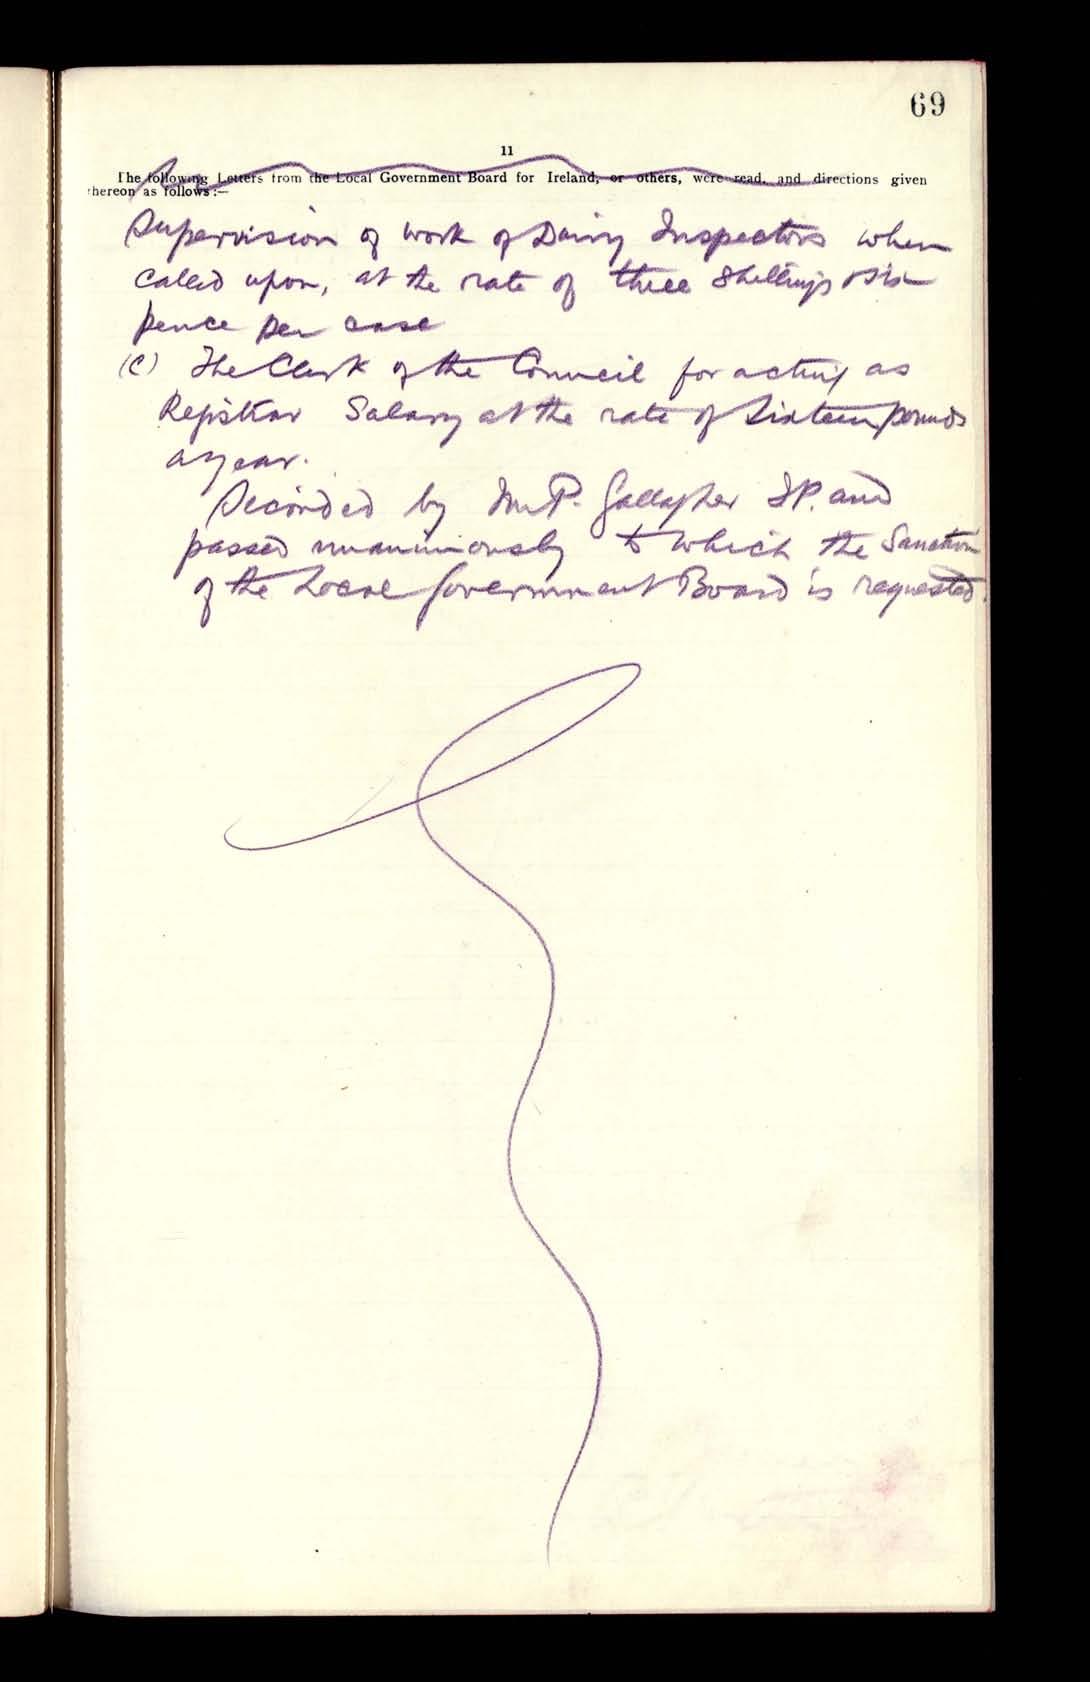 69
11
The following Letters from the Local Government Board for Ireland, or others, were read, and directions given
thereon as follows:—
Supervision of work of Dairy Inspectors when
called upon, at the rate of three shillings & six
pence per case
(C) The Clerk of the Council for acting as
Registrar Salary at the rate of Sixteen pounds
a year.
Seconded by Mr P. Gallagher JP. and
passed unanimously to which the Sanction
of the Local Government Board is requested.